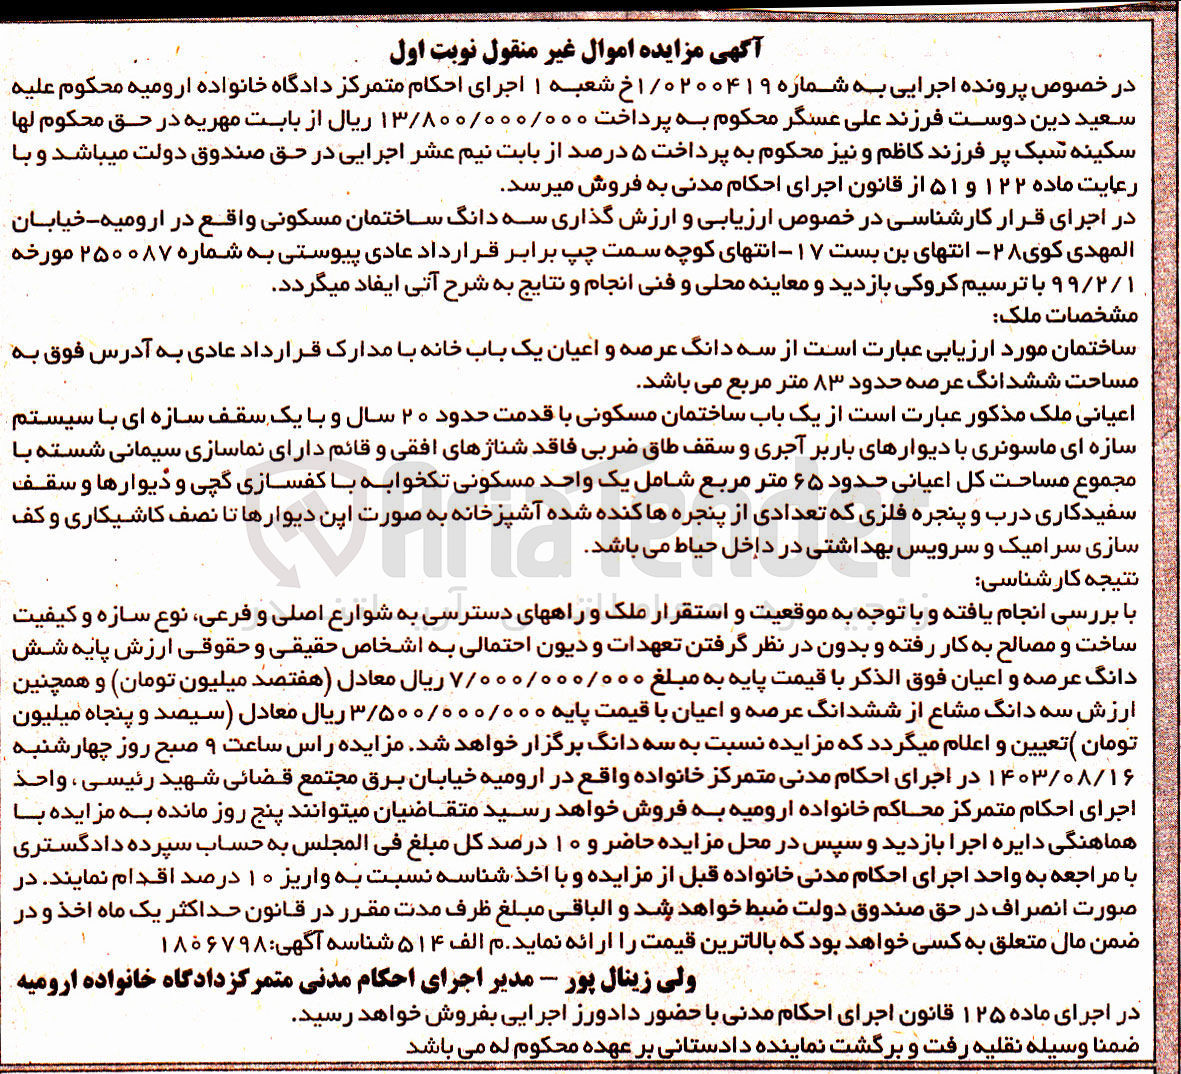 آگهی مزایده اموال غیر منقول نوبت اول
در خصوص پرونده اجرایی به شماره ۱/۰۲۰۰۴۱۹خ شعبه ۱ اجرای احکام متمرکز دادگاه خانواده ارومیه محکوم علیه
سعید دین دوست فرزند علی عسگر محکوم به پرداخت ۱۳/۸۰۰/۰۰۰/۰۰۰ ریال از بابت مهریه در حق محکوم لها
سکینه سبک پر فرزند کاظم و نیز محکوم به پرداخت ۵ درصد از بابت نیم عشر اجرایی در حق صندوق دولت میباشد و با
رعایت ماده ۱۲۲ و ۵۱ از قانون اجرای احکام مدنی به فروش میرسد.
در اجرای قرار کارشناسی در خصوص ارزیابی و ارزش گذاری سه دانگ ساختمان مسکونی واقع در ارومیه-خیابان
المهدی کوی۲۸- انتهای بن بست ۱۷-انتهای کوچه سمت چپ برابر قرارداد عادی پیوستی به شماره ۲۵۰۰۸۷ مورخه
۹۹/۲/۱ با ترسیم کروکی بازدید و معاینه محلی و فنی انجام و نتایج به شرح آتی ایفاد میگردد.
مشخصات ملک:
ساختمان مورد ارزیابی عبارت است از سه دانگ عرصه و اعیان یک باب خانه با مدارک قرارداد عادی به آدرس فوق به
مساحت ششدانگ عرصه حدود ۸۳ متر مربع می باشد.
اعیانی ملک مذکور عبارت است از یک باب ساختمان مسکونی با قدمت حدود ۲۰ سال و با یک سقف سازه ای با سیستم
سازه ای ماسونری با دیوارهای باربر آجری و سقف طاق ضربی فاقد شناژهای افقی و قائم دارای نماسازی سیمانی شسته با
مجموع مساحت کل اعیانی حدود ۶۵ متر مربع شامل یک واحد مسکونی تکخوابه با کفسازی گچی و دیوارها و سقف
سفیدکاری درب و پنجره فلزی که تعدادی از پنجره ها کنده شده آشپزخانه به صورت اپن دیوارها تا نصف کاشیکاری و کف
سازی سرامیک و سرویس بهداشتی در داخل حیاط می باشد.
نتیجه کارشناسی:
با بررسی انجام یافته و با توجه به موقعیت و استقرار ملک و راههای دسترسی به شوارع اصلی و فرعی، نوع سازه و کیفیت
ساخت و مصالح به کار رفته و بدون در نظر گرفتن تعهدات و دیون احتمالی به اشخاص حقیقی و حقوقی ارزش پایه شش
دانگ عرصه و اعیان فوق الذکر با قیمت پایه به مبلغ ۷/۰۰۰/۰۰۰/۰۰۰ ریال معادل (هفتصد میلیون تومان) و همچنین
ارزش سه دانگ مشاع از ششدانگ عرصه و اعیان با قیمت پایه ۳/۵۰۰/۰۰۰/۰۰۰ ریال معادل (سیصد و پنجاه میلیون
تومان )تعیین و اعلام میگردد که مزایده نسبت به سه دانگ برگزار خواهد شد. مزایده راس ساعت ۹ صبح روز چهارشنبه
۱۴۰۳/۰۸/۱۶ در اجرای احکام مدنی متمرکز خانواده واقع در ارومیه خیابان برق مجتمع قضائی شهید رئیسی ، واحد
اجرای احکام متمرکز محاکم خانواده ارومیه به فروش خواهد رسید متقاضیان میتوانند پنج روز مانده به مزایده با
هماهنگی دایره اجرا بازدید و سپس در محل مزایده حاضر و ۱۰ درصد کل مبلغ فی المجلس به حساب سپرده دادگستری
با مراجعه به واحد اجرای احکام مدنی خانواده قبل از مزایده و با اخذ شناسه نسبت به واریز ۱۰ درصد اقدام نمایند. در
صورت انصراف در حق صندوق دولت ضبط خواهد شد و الباقی مبلغ ظرف مدت مقرر در قانون حداکثر یک ماه اخذ و در
ضمن مال متعلق به کسی خواهد بود که بالاترین قیمت را ارائه نماید.م الف ۵۱۴ شناسه آگهی:۱۸۰۶۷۹۸
ولی زینال پور – مدیر اجرای احکام مدنی متمرکزدادگاه خانواده ارومیه
در اجرای ماده ۱۲۵ قانون اجرای احکام مدنی با حضور دادورز اجرایی بفروش خواهد رسید.
ضمنا وسیله نقلیه رفت و برگشت نماینده دادستانی بر عهده محکوم له می باشد
AriaTender